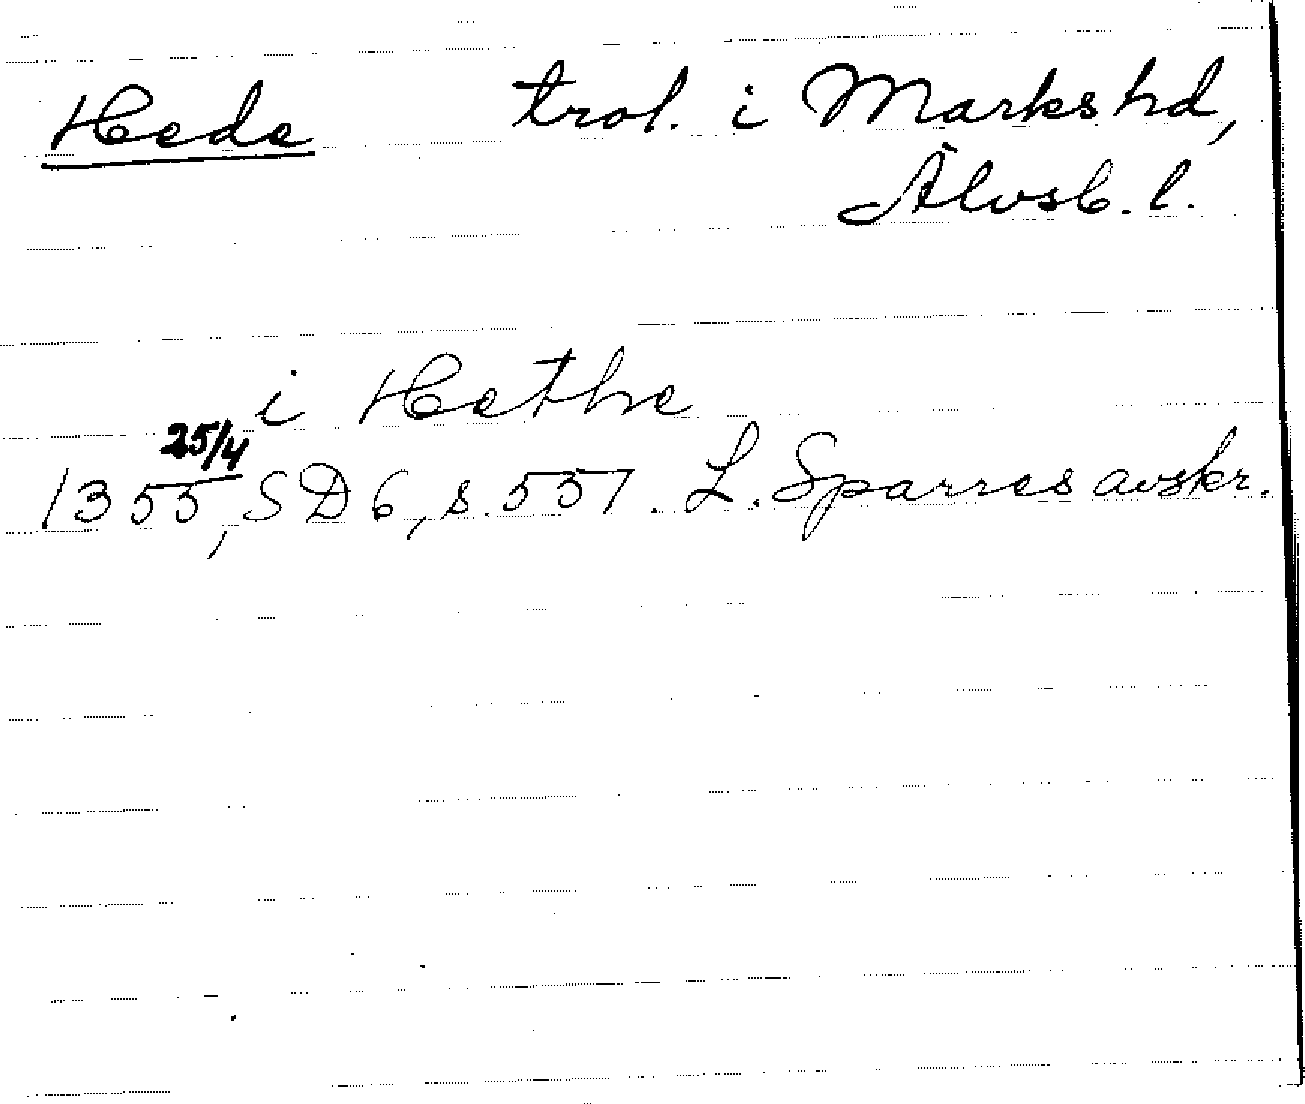 Hede trol. i Marks hd,
Älvsb. l.
i Hethe
25/4
1355, SD 6, s. 551. L. Sparres avskr.